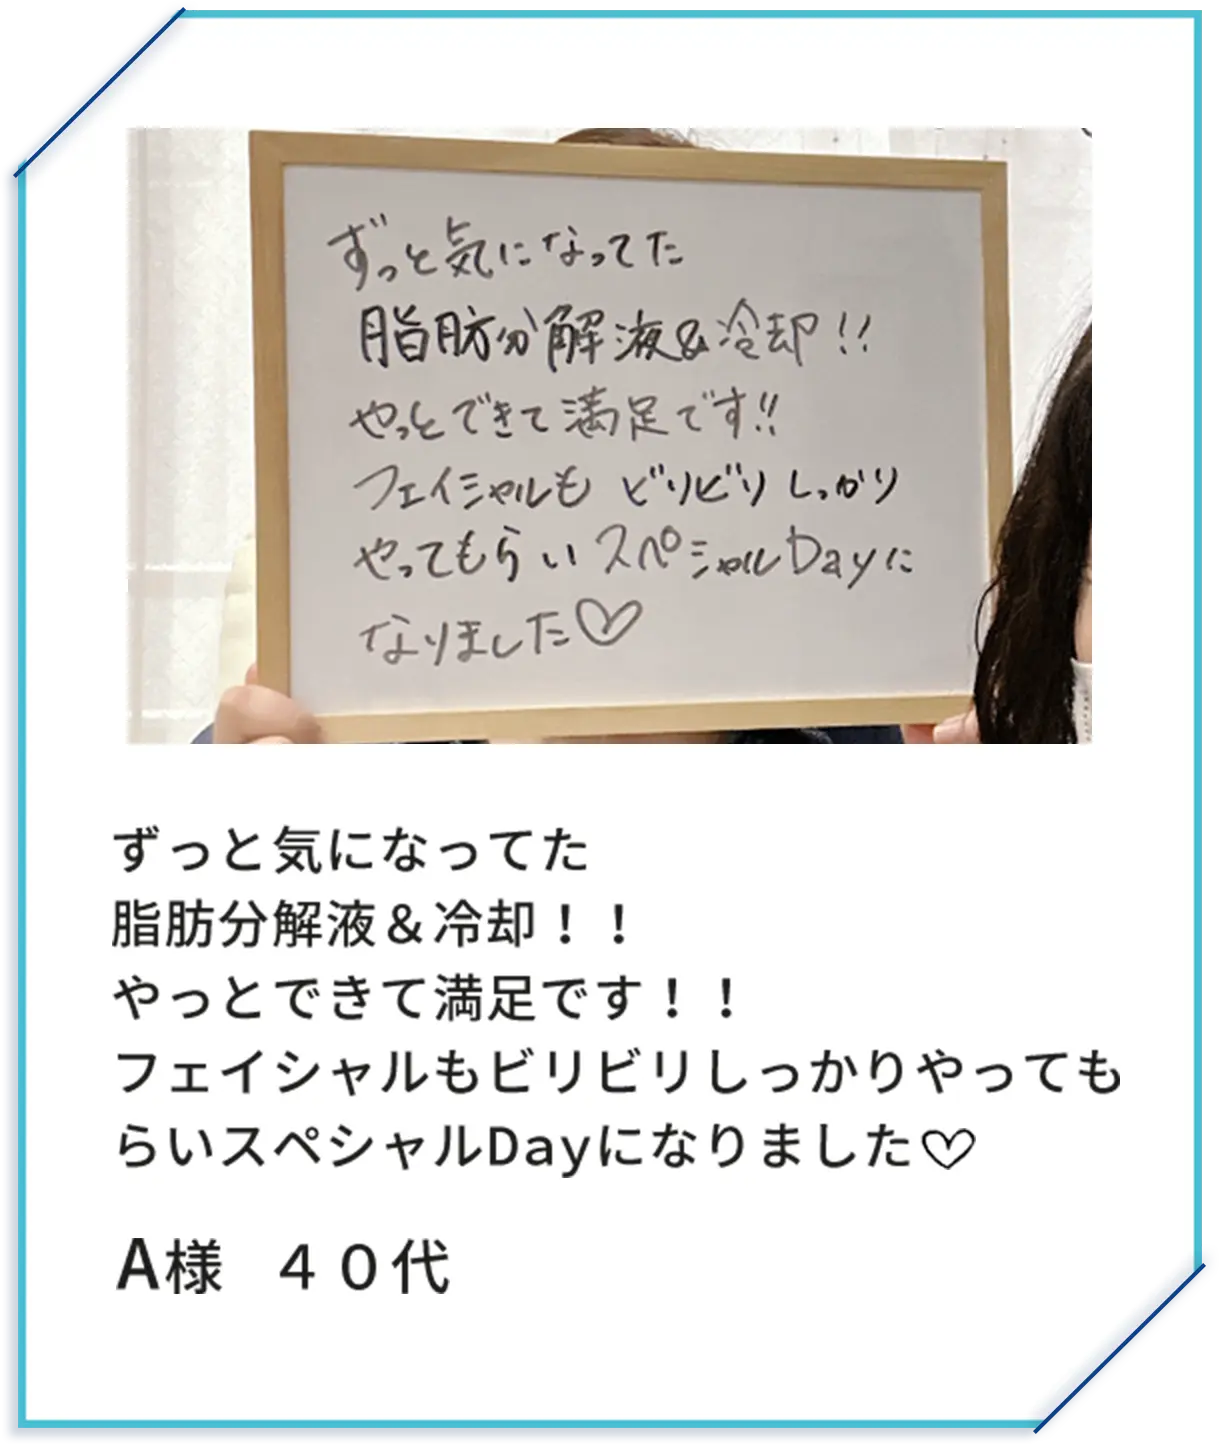 ずっと気になってた
脂肪分解液&冷却!!
やっとできて満足です!!
フェイシャルも ビリビリ しっかり
やってもらい スペシャルDayに
なりました♡
ずっと気になってた
脂肪分解液＆冷却！！
やっとできて満足です！！
フェイシャルもビリビリしっかりやっても
らいスペシャルDayになりました♡
A様 ４０代